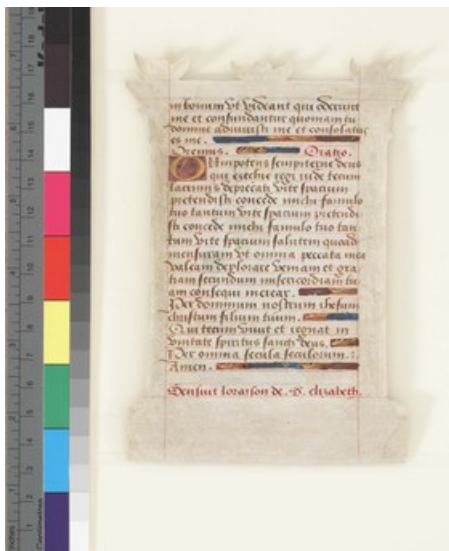 in bonum vt videant qui oderunt
me et confundantur quoniam tu
domine adiuuisti me et consolatus
es me.
Oremus. Oratio.
OMnipotens sempiterne deus
qui ezechie regi iude tecum
lacrimis deprecati vite spacium
pretendisti concede michi famulo
tuo tantum vite spacium pretendi-
sti concede michi famulo tuo tan-
tum vite spacium saltem quoad
mensuram vt omnia peccata mea
valeam deplorare veniam et gra-
tiam secundum misericordiam tu-
am consequi merear.
Per dominum nostrum ihesum
christum filium tuum.
Qui tecum viuit et regnat in
vnitate spiritus sancti deus.
Per omnia secula seculorum.
Amen.
Sensuit loraison de. S. elizabeth.